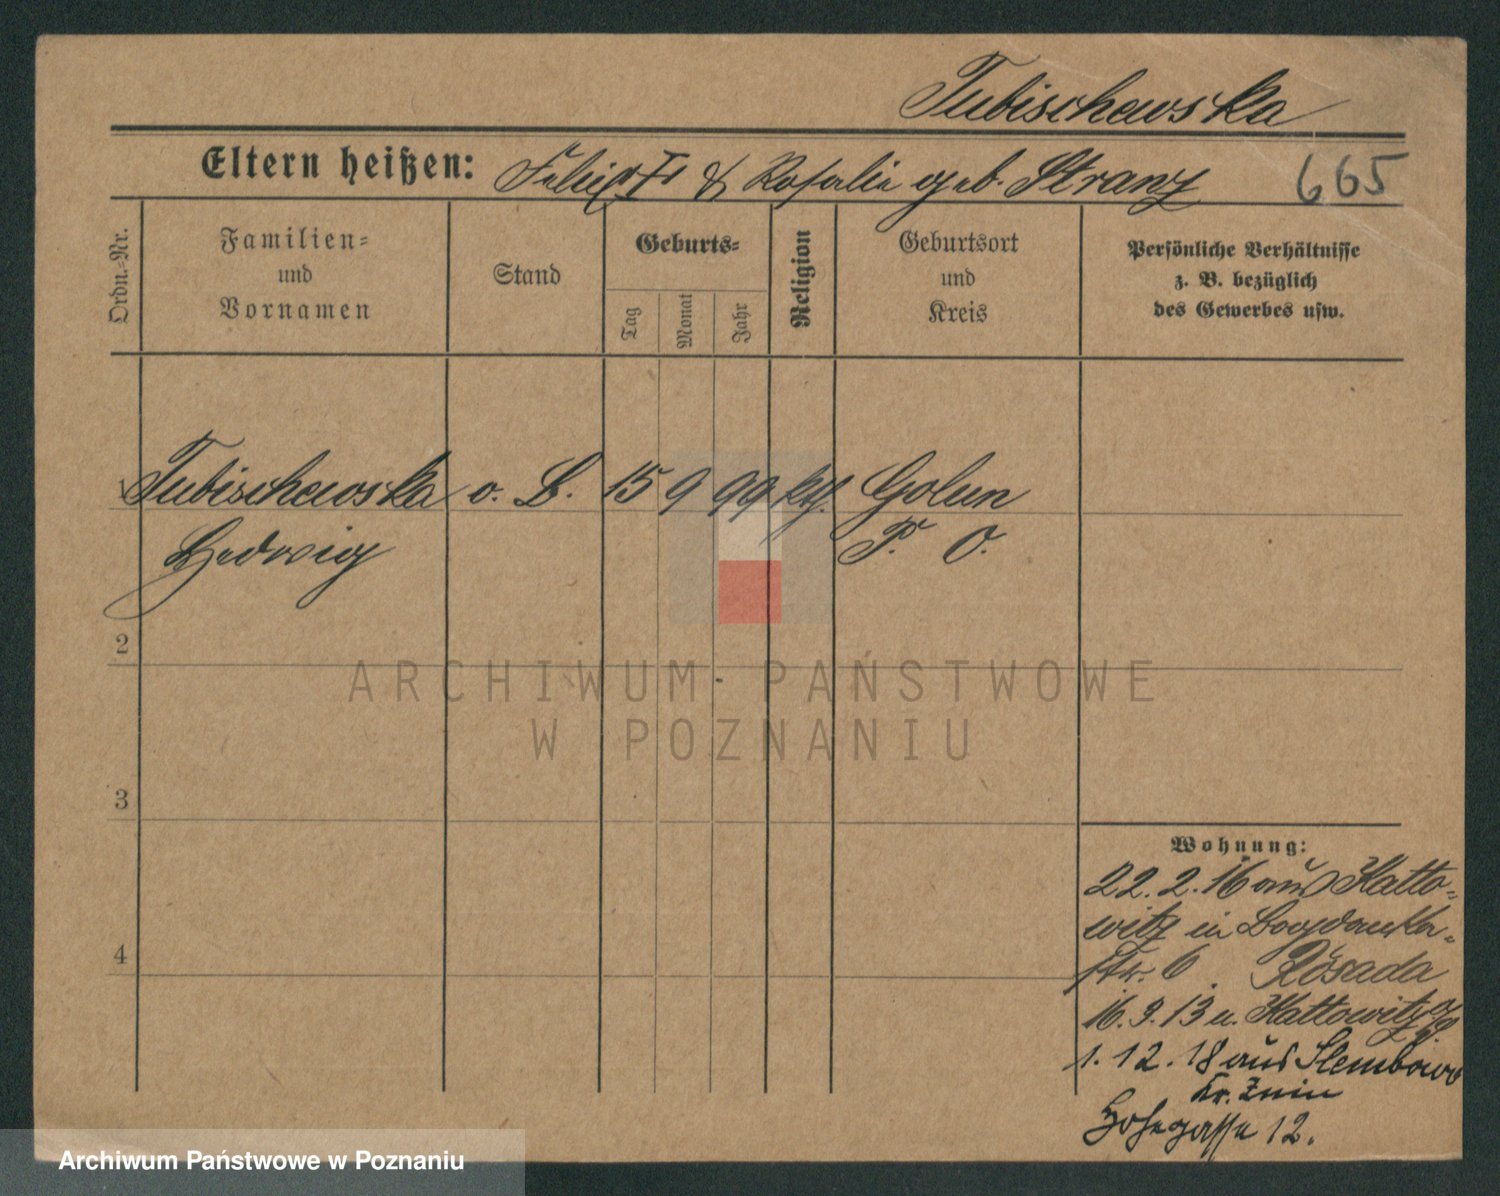 Tubischewska
Eltern heißen: Felix & Rosalie geb. Stranz
665
Ordn.-Nr.
Familien-
und
Vornamen
Stand
Geburts-
Tag
Monat
Jahr
Religion
Geburtsort
und
Kreis
Persönliche Verhältnisse
z. B. bezüglich
des Gewerbes usw.
1 Tubischewska o. B. 15 9 99 kth. Golun
Hedwig P. O.
2
3
4
Wohnung:
22. 2. 16 aus Katto-
witz in Bogdanka-
str. 6 Rosada
16. 3. 17 n. Kattowitz
1. 12. 18 aus Slembowo
Kr. Znin
Hohegasse 12.
ARCHIWUM PAŃSTWOWE
W POZNANIU
Archiwum Państwowe w Poznaniu